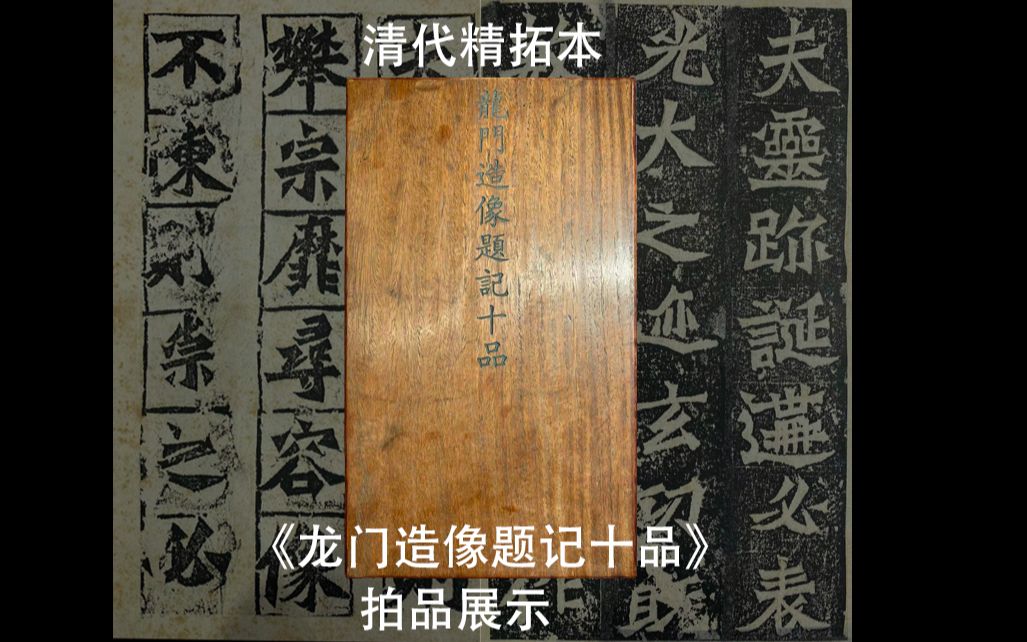 清代精拓本
龍門造像題記十品
《龙门造像题记十品》
拍品展示
夫靈跡誕遘必表
光大之迹玄
舉宗靡尋容像
不東則崇之必